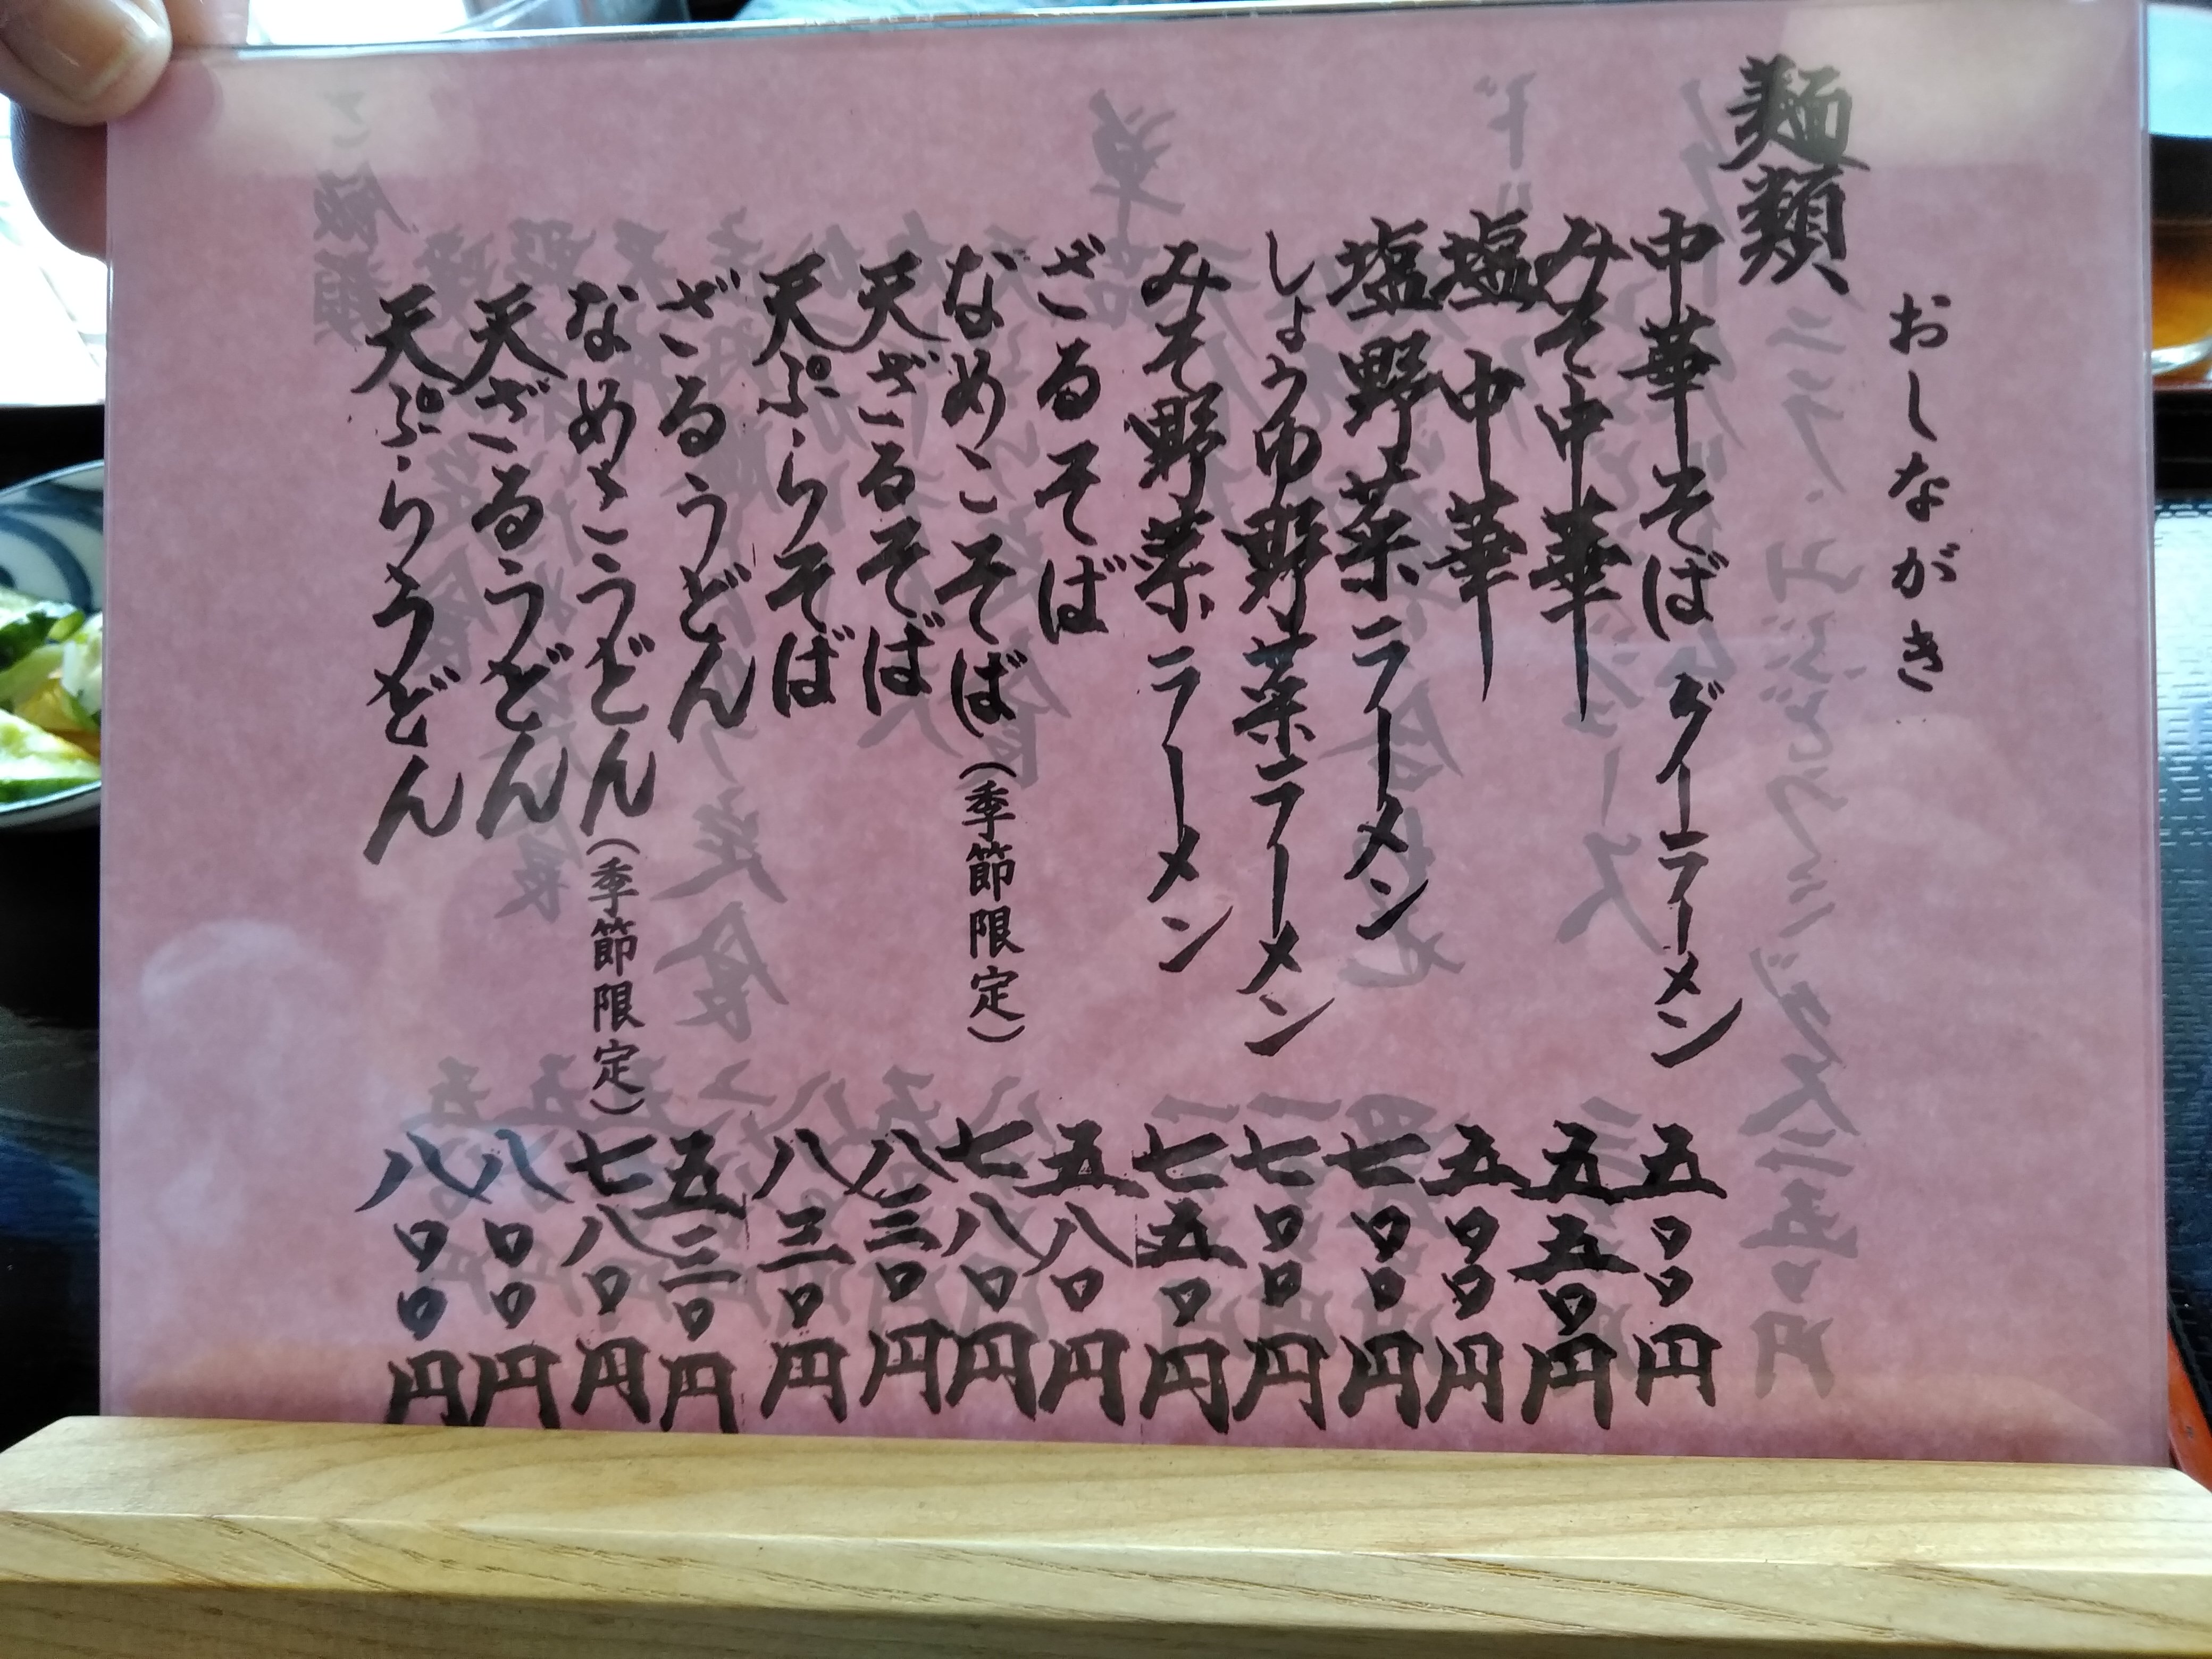 おしながき
麺類
中華そば ダイラーメン 五〇〇円
みそ中華 五五〇円
塩中華 五〇〇円
塩野菜ラーメン 七〇〇円
しょうゆ野菜ラーメン 七〇〇円
みそ野菜ラーメン 七五〇円
ざるそば 五八〇円
なめこそば（季節限定） 七八〇円
天ざるそば 八三〇円
天ぷらそば 八三〇円
ざるうどん 五三〇円
なめこうどん（季節限定） 七八〇円
天ざるうどん 八〇〇円
天ぷらうどん 八〇〇円